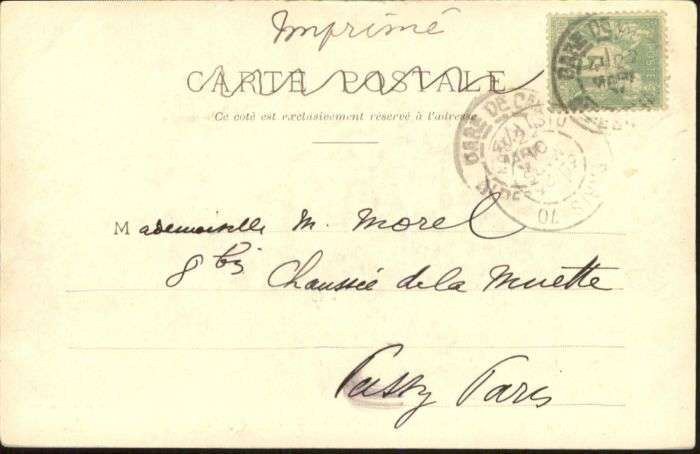 Imprimé
CARTE POSTALE
Ce côté est exclusivement réservé à l'adresse
Mademoiselle M. Morel
8 bis Chaussée de la Muette
Passy Paris
GARE DE
GARE DE
PARIS
70